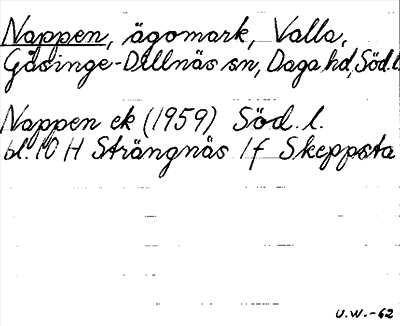 Nappen, ägomark, Valla,
Gåsinge-Dillnäs sn, Daga hd, Söd. l.
Nappen ek (1959) Söd. l.
bl. 10 H Strängnäs 1f Skeppsta
U.W.-62